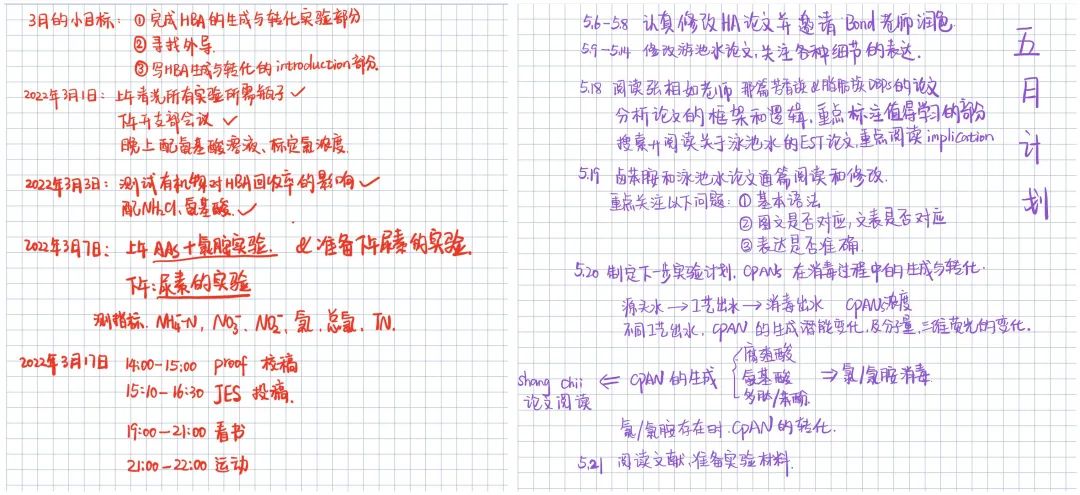 3月的小目标: ① 完成HBA的生成与转化实验部分
② 寻找外导.
③ 写HBA生成与转化的introduction部分.
2022年3月1日: 上午清洗所有实验所需瓶子 ✓
下午开支部会议 ✓
晚上配氨基酸溶液、标定氯浓度.
2022年3月3日: 测试有机物对HBA回收率的影响 ✓
配NH₄Cl、氨基酸. ✓
2022年3月7日: 上午 AAs + 氯胺实验. & 准备下午尿素的实验.
下午: 尿素的实验
测指标. NH₄⁺-N, NO₃⁻, NO₂⁻, 氯, 总氯, TN.
2022年3月17日 14:00-15:00 proof 校稿
15:10-16:30 JES 投稿.
19:00-21:00 看书
21:00-22:00 运动
五月计划
5.6-5.8 认真修改HA论文并邀请Bond老师润色.
5.9-5.14 修改游泳池水论文,关注各种细节的表达.
5.18 阅读张相如老师那篇 & 脂肪族DBPs的论文
分析论文的框架和逻辑,重点标注值得学习的部分
搜索并阅读关于泳池水的EST论文,重点阅读implication
5.19 卤苯胺和泳池水论文通篇阅读和修改.
重点关注以下问题: ① 基本语法
② 图文是否对应,文表是否对应
③ 表达是否准确
5.20 制定下一步实验计划. CPANs 在消毒过程中的生成与转化.
源头水 → 工艺出水 → 消毒出水 CPANs浓度
不同工艺出水, CPAN 的生成潜能变化, 及分子量, 三维荧光的变化.
Shang Chii 论文阅读 ⇐ CPAN 的生成 { 腐殖酸 氨基酸 多肽/ ⇒ 氯/氯胺消毒
氯/氯胺存在时. CPAN 的转化.
5.21 阅读文献,准备实验材料.